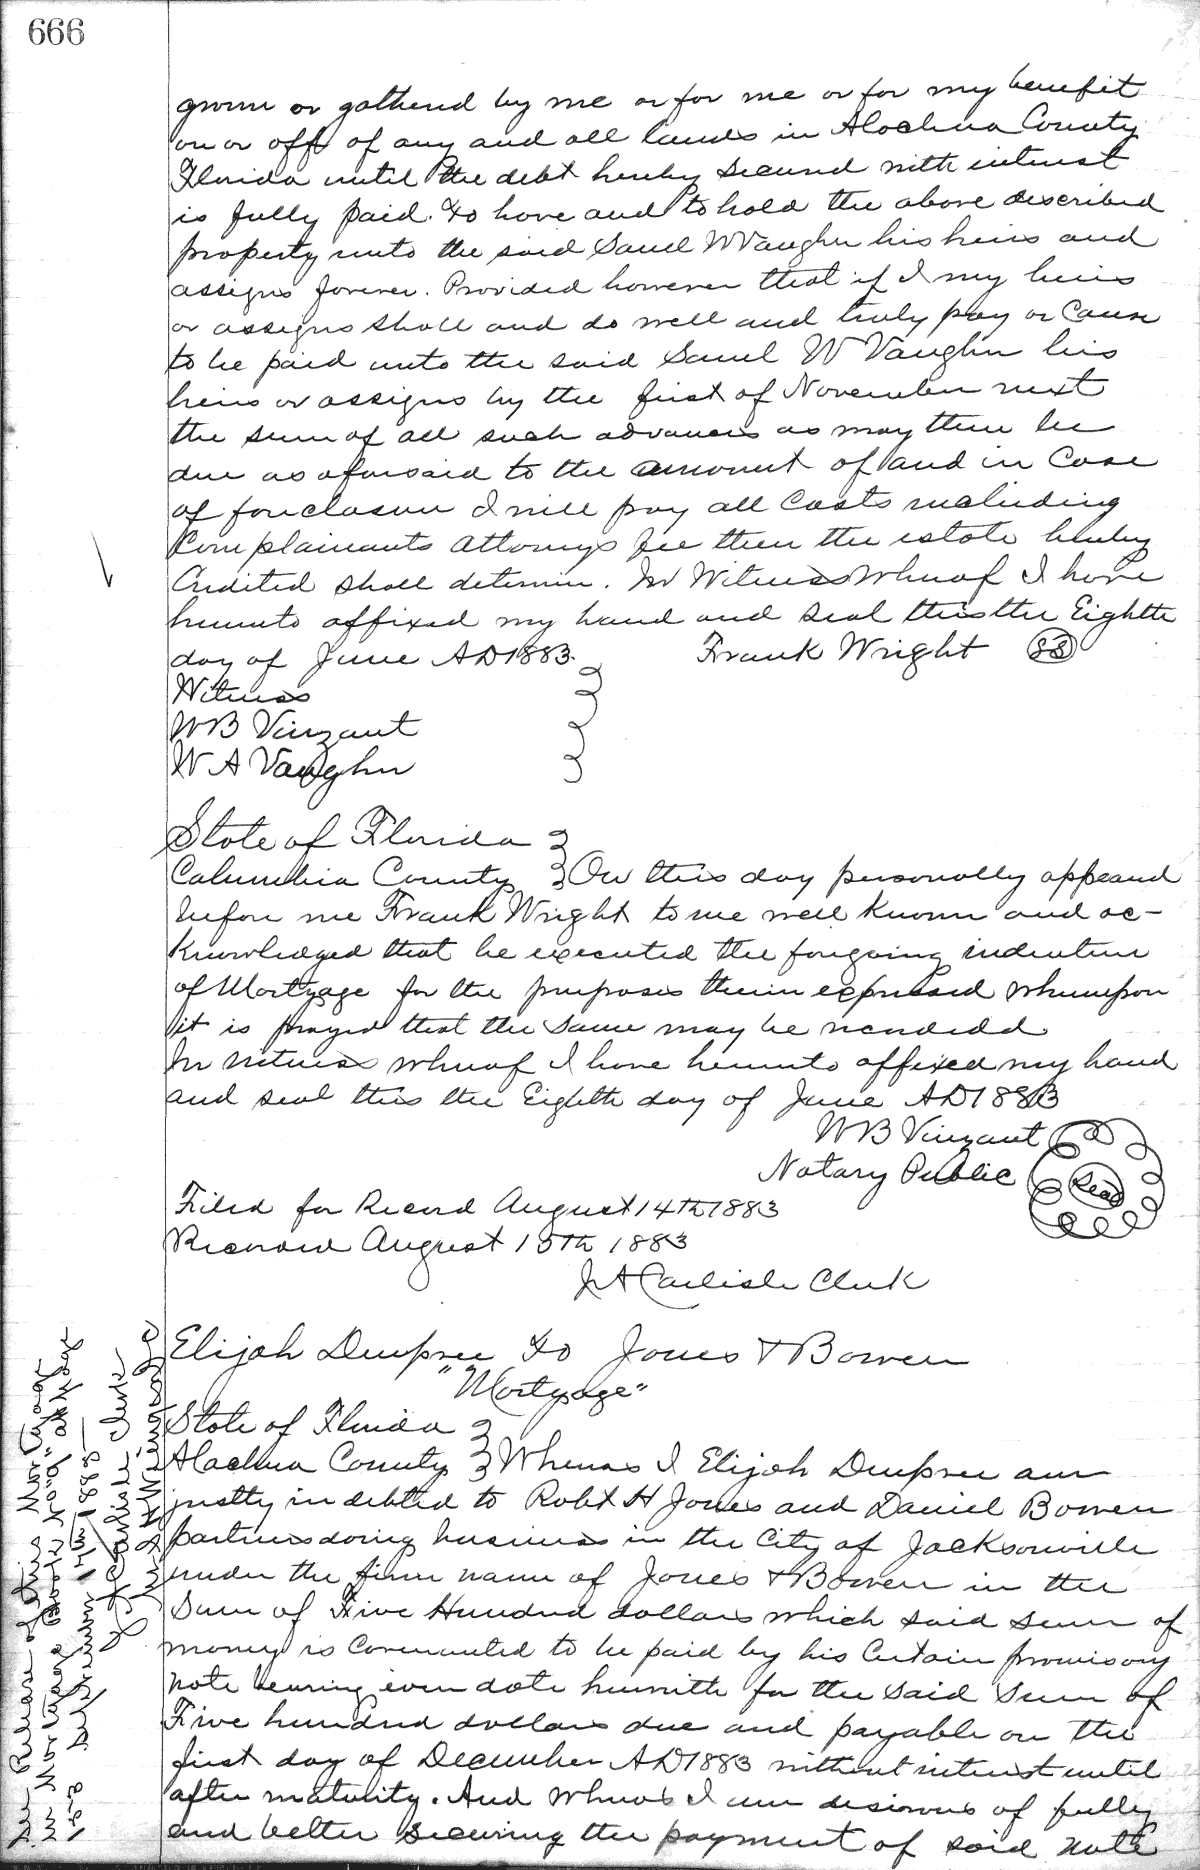 666
grown or gathered by me or for me or for my benefit
on or off of any and all lands in Alachua County
Florida until the debt hereby secured with interest
is fully paid. To have and to hold the above described
property unto the said Saml W Vaughn his heirs and
assigns forever. Provided however that if I my heirs
or assigns shall and do well and truly pay or Cause
to be paid unto the said Saml W Vaughn his
heirs or assigns by the first of November next
the sum of all such advances as may then be
due as aforsaid to the amount of and in Case
of foreclosure I will pay all Costs including
Complainants Attorneys fee then the estate hereby
Credited shall determin. In Witness Whereof I have
hereunto affixed my hand and seal this the Eighth
day of June AD 1883. Frank Wright
Witness
WB Vinzant
W A Vaughn
State of Florida
Columbia County On this day personally appeared
before me Frank Wright to me well known and ac-
knowledged that he executed the foregoing indenture
of Mortgage for the purposes therein expressed whereupon
it is prayed that the same may be recorded
In witness whereof I have hereunto affixed my hand
and seal this the Eighth day of June AD 1883
WB Vinzant
Notary Public Seal
Filed for Record August 14th 1883
Recorded August 15th 1883
J A Carlisle Clerk
Elijah Dupree To Jones & Bowen
"Mortgage"
State of Florida
Alachua County Whereas I Elijah Dupree am
justly indebted to Robt H Jones and Daniel Bowen
partners doing business in the City of Jacksonville
under the firm name of Jones & Bowen in the
Sum of Five Hundred dollars which said sum of
money is Covenanted to be paid by his Certain promisory
note bearing even date herewith for the said Sum of
Five hundred dollars due and payable on the
first day of December AD 1883 without interest until
after maturity. And whereas I am desirous of fully
and better securing the payment of said note
See Release of this Mortgage
in Mortgage Book No "9" at page
153 September 17th 1888
J A Carlisle Clerk